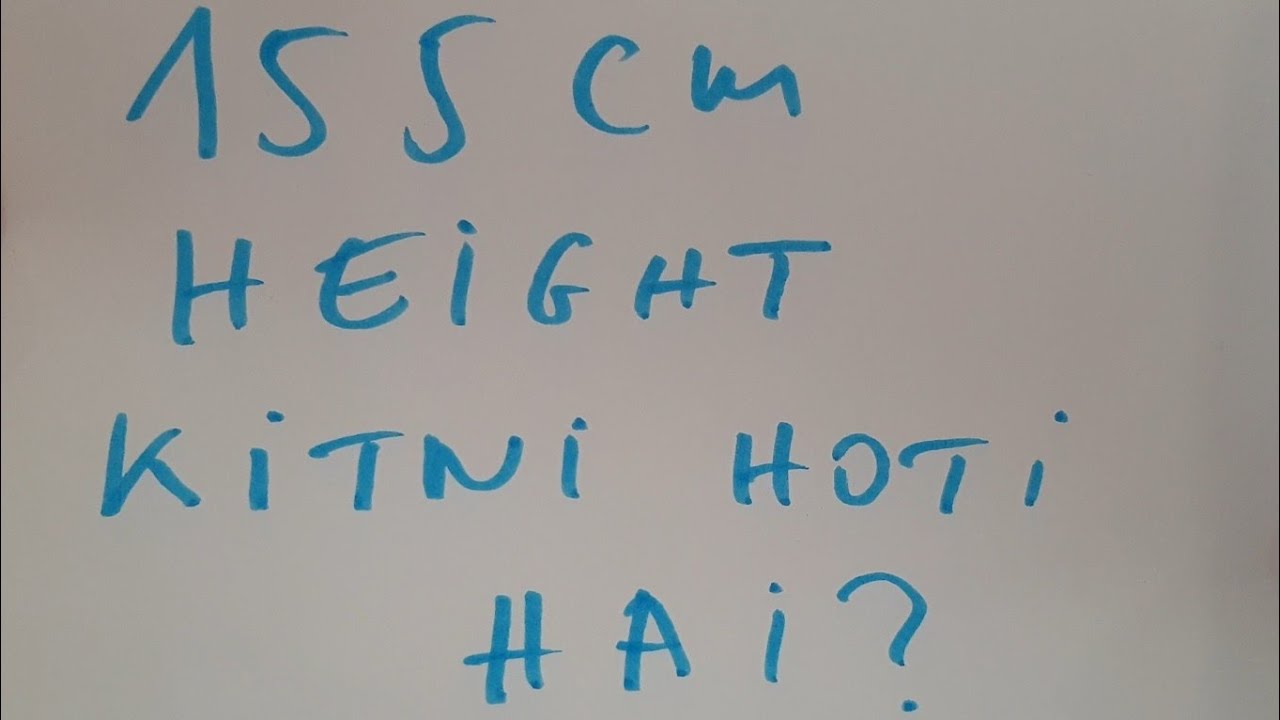 155 cm
HEiGHT
KiTNi HOTi
HAi?